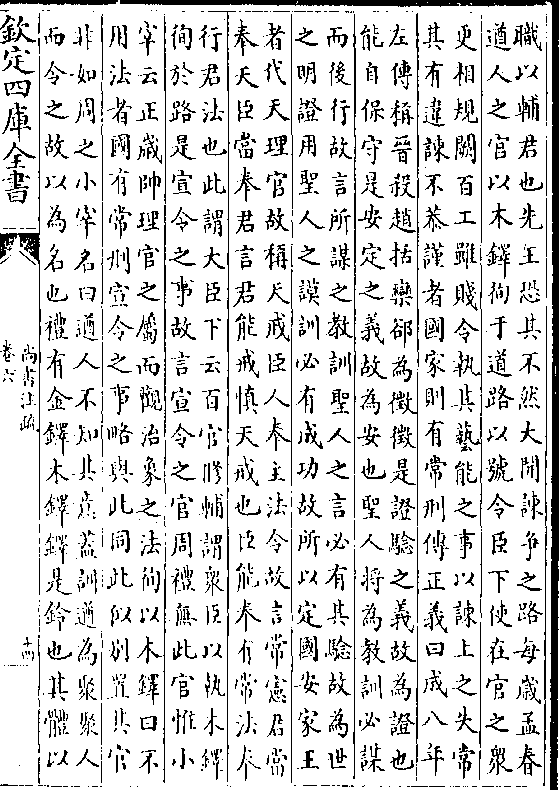 職以輔君也先王恐其不然大開諫爭之路每歲孟春
遒人之官以木鐸徇于道路以號令臣下使在官之衆
更相規闕百工雖賤令執其藝能之事以諫上之失常
其有違諫不恭謹者國家則有常刑傳正義曰成八年
左傳稱晉殺趙括欒郤為徵徵是證驗之義故為證也
能自保守是安定之義故為安也聖人將為教訓必謀
而後行故言所謀之教訓聖人之言必有其驗故為世
之明證用聖人之謨訓必有成功故所以定國安家王
者代天理官故稱天戒臣人奉主法令故言常憲君當
奉天臣當奉君言君能戒慎天戒也臣能奉有常法奉
行君法也此謂大臣下云百官修輔謂衆臣以執木鐸
徇於路是宣令之事故言宣令之官周禮無此官惟小
宰云正歲帥理官之屬而觀治象之法徇以木鐸曰不
用法者國有常刑宣令之事略與此同此似別置其官
非如周之小宰名曰遒人不知其意蓋訓遒為聚聚人
而令之故以為名也禮有金鐸木鐸鐸是鈴也其體以
欽定四庫全書
尚書注疏
卷六
十四